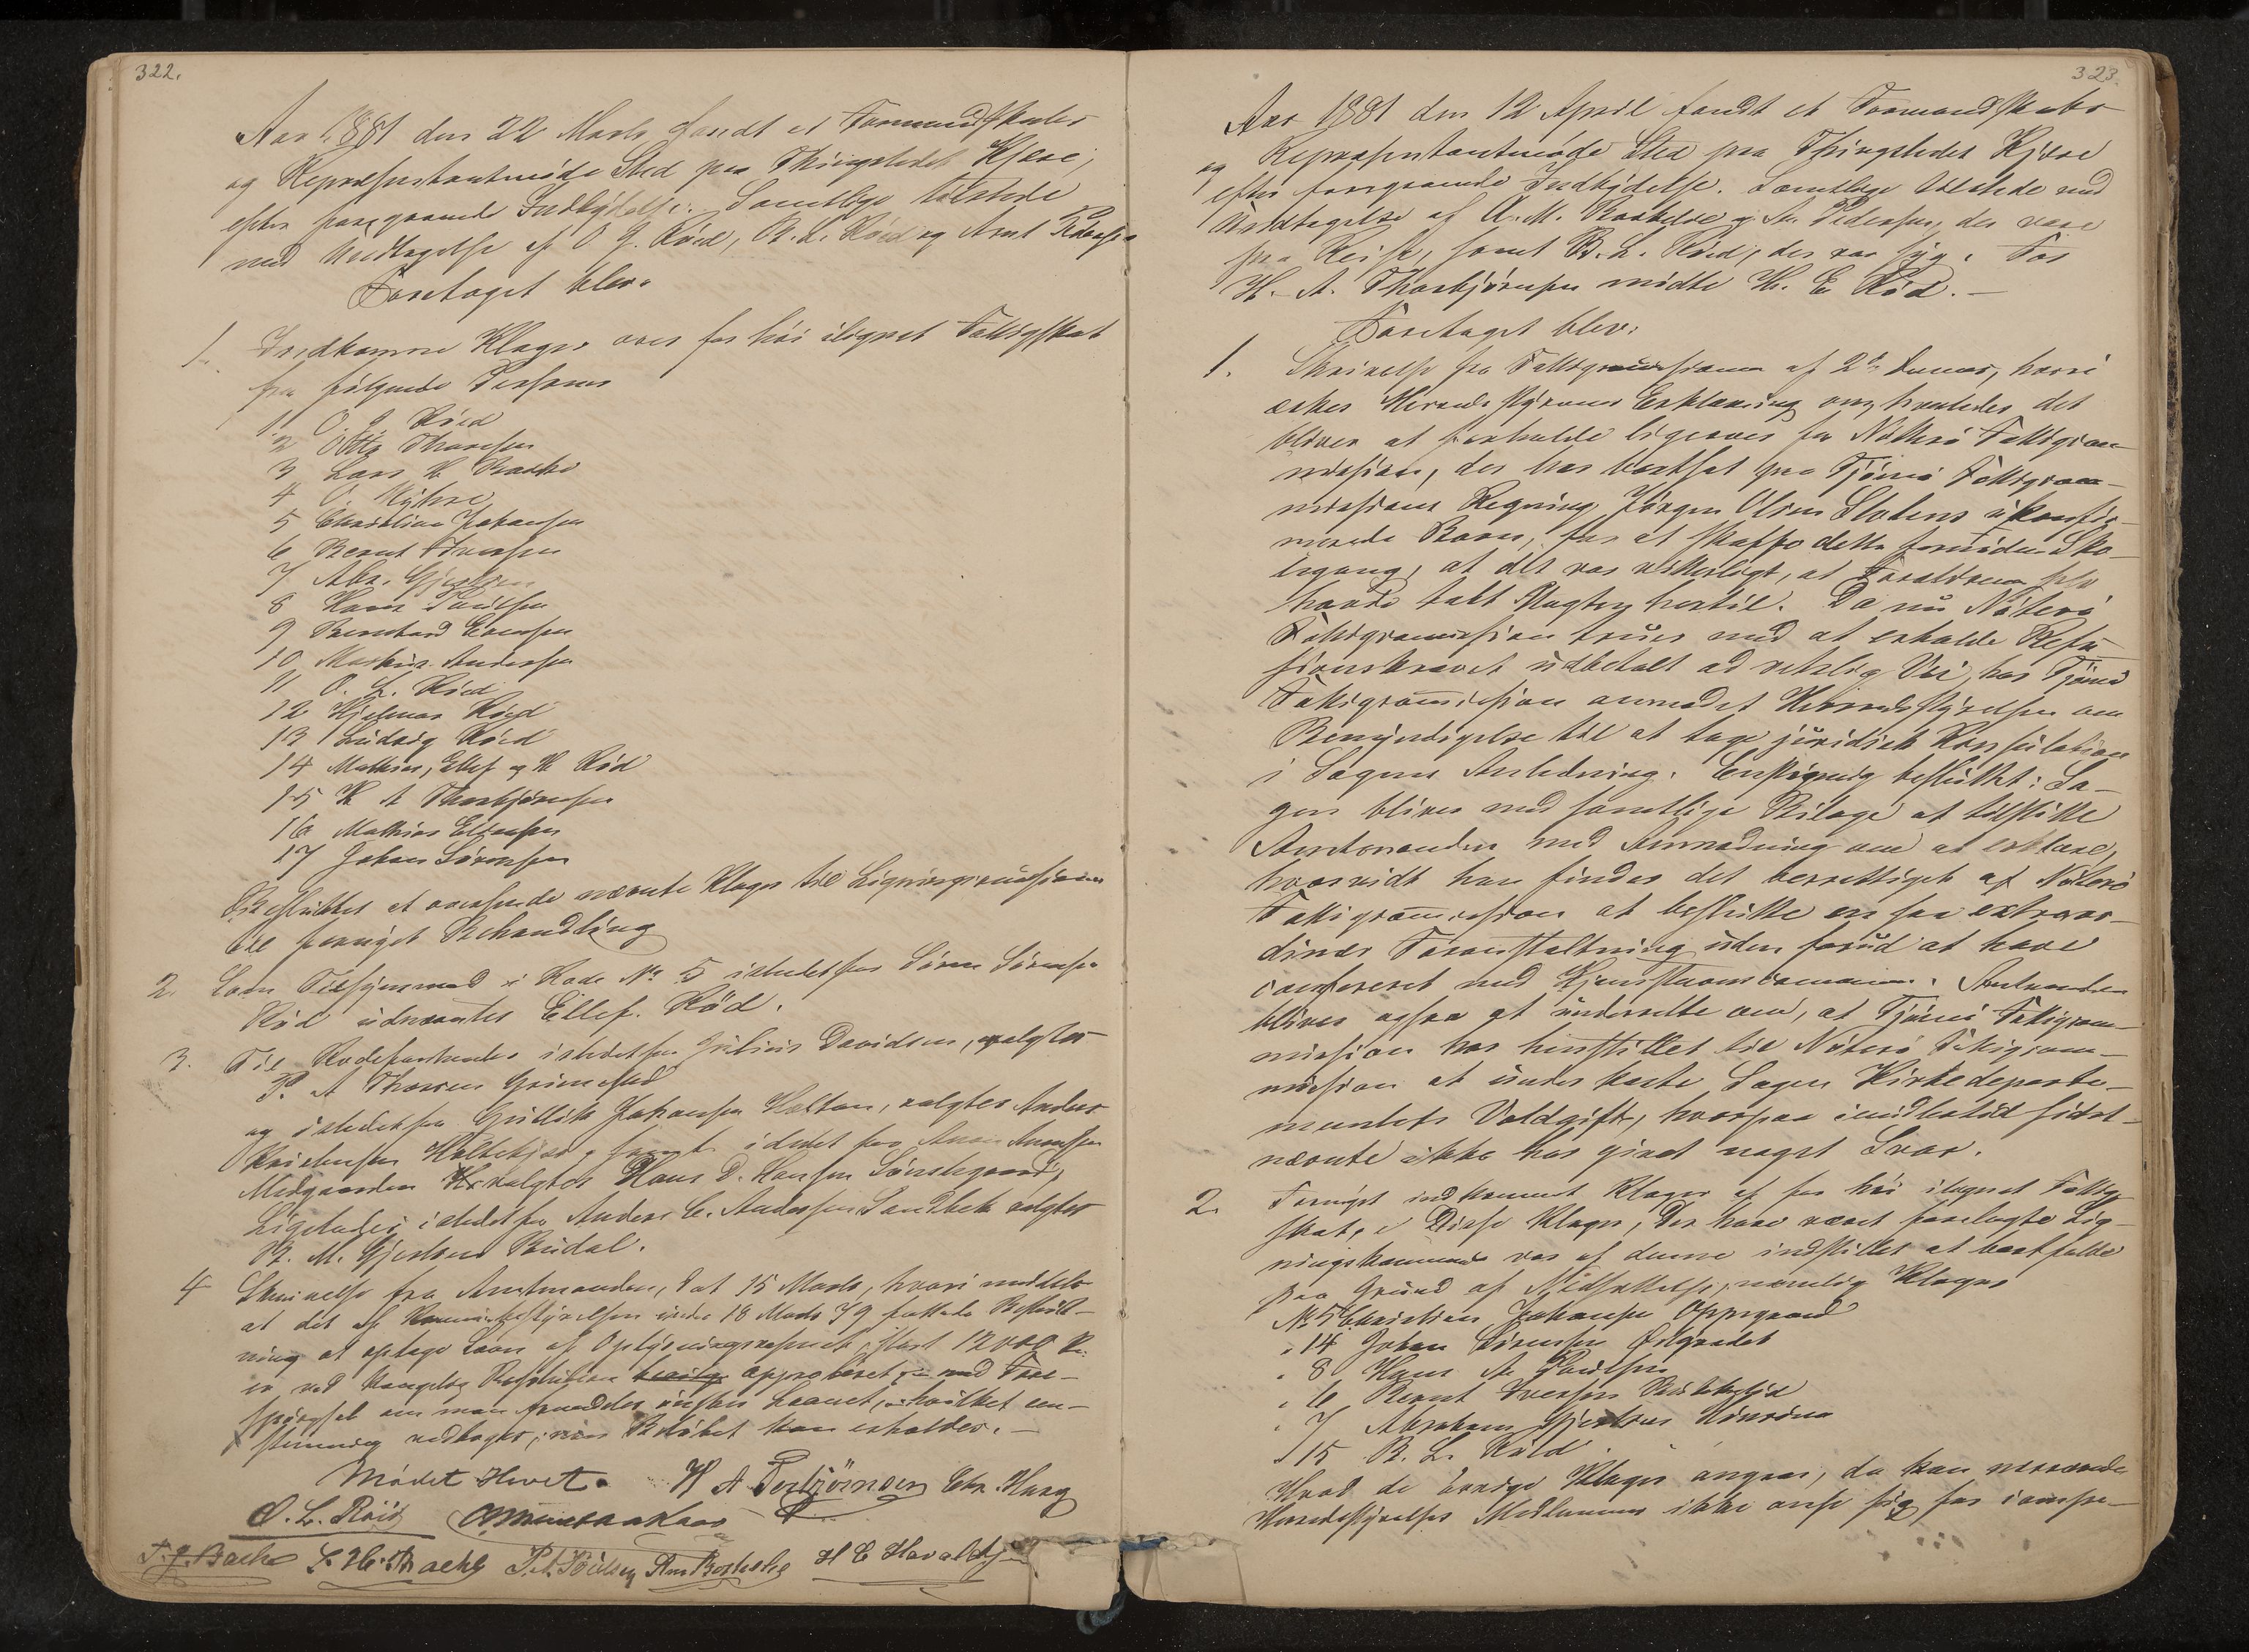 322.
Aar 1881 den 22 Marts fandt et Formandskabs
og Repræsentantmøde Sted paa Thingstedet Kjære,
efter foregaaende Indbydelse. Samtlige tilstede
med Undtagelse af O. J. Röed, B. L. Röed og Arnt Pedersen
Foretaget blev:
1. Indkomne Klager over for høi ilignet Fattigskat
fra følgende Personer
1 O. J. Röed
2 Otto Thoresen
3 Lars H. Bache
4 O. Myhre
5 Christian Johansen
6 Bernt Iversen
7 Abr. Gjertsen
8 Hans Paulsen
9 Bernhard Evensen
10 Mathis Andersen
11 O. L. Röed
12 Hjelmar Röed
13 Ludvig Röed
14 Mathias, Ellef og H Röd
15 H A Thorbjørnsen
16 Mathias Ellefsen
17 Johan Sørensen
Besluttet at oversende nævnte Klager til Ligningscommissionen
til fornyet Behandling
2. Som Tilsynsmand i Rode No 5 istedetfor Søren Sørensen
Röd udnævntes Ellef Röd.
3. Til Rodeforstander istedetfor Julius Davidsen, valgtes
P. A Thoresen Grimestad
og istedetfor Gullik Johansen Holtan, valgtes Anders
Kristensen Holtekjær, samt istedet for Anun Anunsen
Medgaarden valgtes Hans D. Hansen Sønstegaard,
Ligeledes istedetfor Anders C. Andersen Sandbek valgtes
B. M. Gjertsen Budal.
4 Skrivelse fra Amtmanden, dat 15 Marts, hvori meddeles
at det af Kommunebestyrelsen under 18 Marts 79 fattede Beslut-
ning at optage Laan af Oplysningsvæsenet, stort 12000 Kr.
er ved Kongelig Resolution approberet, med Fore-
spørgsel om man fremdeles ønsker Laanet, hvilket een-
stemmig vedtoges, naar Beløbet kan erholdes.
Mødet Hævet. H A Torbjörnsen Chr. Haug
O. L. Röed
F. J. Bache L. H. Bache P. A. Poulsen H E Havaldsen
323
Aar 1881 den 12 April fandt et Formandskabs
og Repræsentantmøde Sted paa Thingstedet Kjære
efter foregaaende Indbydelse. Samtlige tilstede med
Undtagelse af A. M. Bakkeskø og A. Pedersen, der vare
paa Reise, samt B. L. Röed, der var syg. For
H. A. Thorbjörnsen mødte H. E. Röd.
Foretaget blev:
1. Skrivelse fra Fattigcommissionen af 2d dennes, hvori
æskes Herredsstyrets Erklæring om, hvorledes det
bliver at forholde ligeover for Nøtterø Fattigcom-
mission, der har bortsat paa Tjømø Fattigcom-
missions Regning Jørgen Olsen Slotens ukonfir-
merede Barn, for at skaffe dette fornøden Sko-
legang, at det var vitterligt, at Forældrene selv
havde tabt Magten hertil. Da nu Nøterø
Fattigcommission truer med at erholde Refu-
sionskravet udbetalt ad retslig Vei, har Tjømø
Fattigcommission anmodet Herredsstyrelsen om
Bemyndigelse til at tage juridisk Konsulation
i Sagens Anledning. Enstemmig besluttet: Sa-
gen bliver med samtlige Bilage at tilstille
Amtmanden med Anmodning om at erklære,
hvorvidt han finder det berettiget af Nøterø
Fattigcommission at beslutte en saa extraor-
dinær Foranstaltning uden forud at have
confereret med Hjemstavnscommunen. Amtmanden
bliver ogsaa at underrette om, at Tjømø Fattigcom-
mission har henstillet til Nøterø Fattigcom-
mission at underkaste Sagen Kirkedeparte-
mentets Voldgift, hvorpaa imidlertid sidst-
nævnte ikke har givet noget Svar.
2. Fornyet indkomne Klager af for høi ilignet Fattig-
skat, Disse Klager, der have været forelagte Lig-
ningskommissionen var af denne indstillet at bortfalde
paa Grund af Nedsættelse, nemlig Klagers
No 5 Christian Johansen Oppegaard
" 14 Johan Sørensen
" 8 Hans A. Poulsen
" 6 Bernt Iversen
" 7 Abraham Gjertsen
" 15 B. L. Röed
Hvad de övrige Klager angaar, da kan nærværende
Herredsstyrelses Medlemmer ikke anse sig for compe-